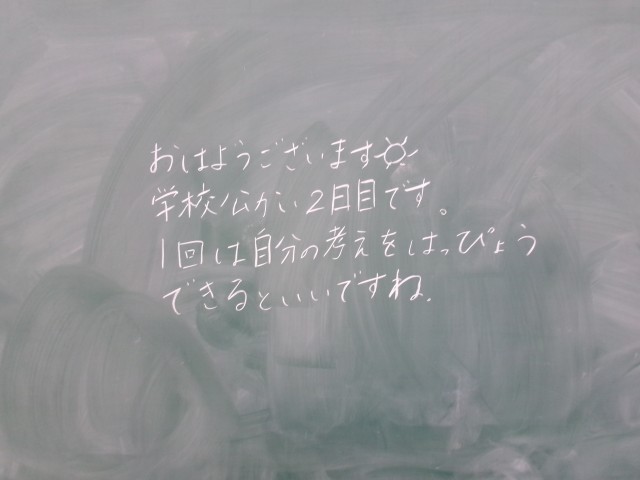 おはようございます☼
学校公かい2日目です。
1回は自分の考えをはっぴょう
できるといいですね.